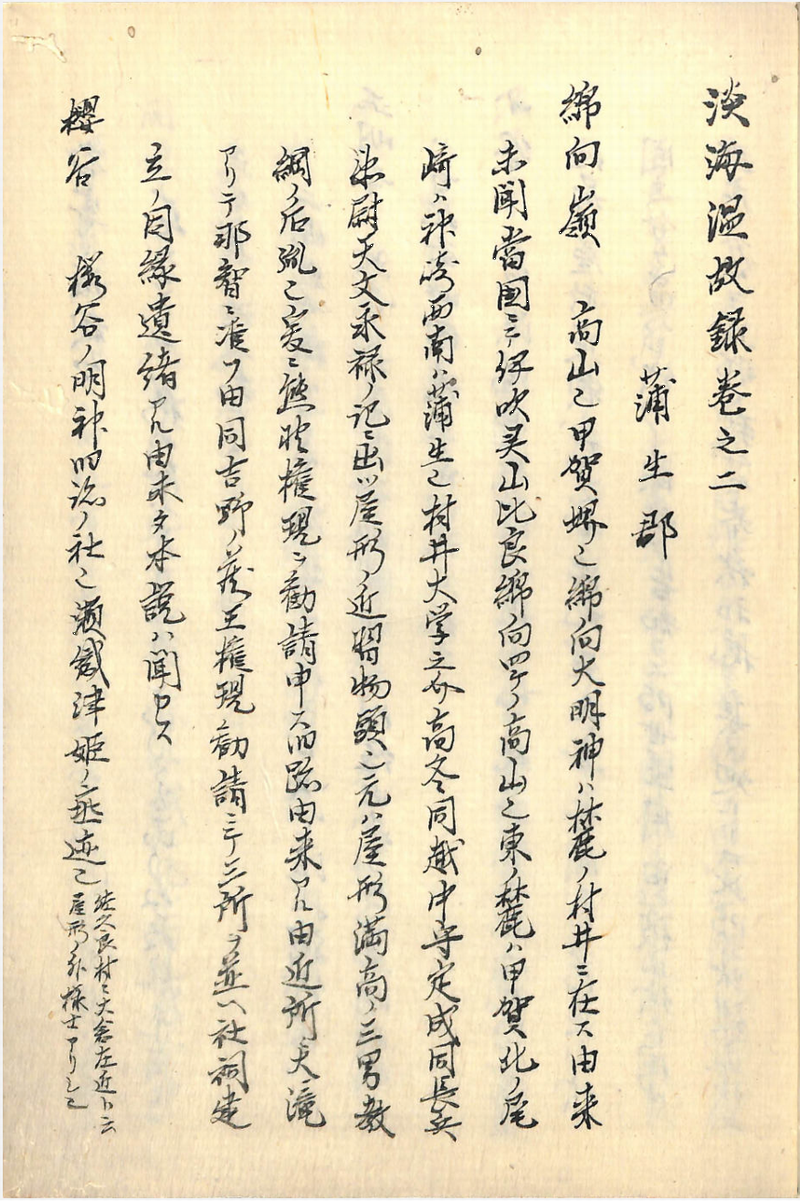 淡海温故録巻之二
蒲生郡
綿向嶺　高山也甲賀堺也綿向大明神ハ麓ノ村井ニ在ス由来
未聞當國ニテ伊吹灵山比良綿向四ケノ高山也東ノ麓ハ甲賀北ノ尾
﨑ハ神﨑西南ハ蒲生也村井大学之介高冬同越中守定成同長兵
衛尉天文永禄ノ記ニ出ツ屋形ノ近習物頭也元ハ屋形満高ノ三男教
綱ノ后胤也爰ニ熊野権現ヲ勧請申ス旧跡由来アル由近所ノ大滝
アリテ那智ニ准ツ由同吉野ノ蔵王権現勧請ニテ三所ヲ並ヘ社祠建
立ノ因縁遺緒アル由未タ本説ハ聞セス
櫻谷　櫻谷ノ明神旧跡ノ社也瀬織津姫ノ垂迹也
佐久良村ニ大倉左近ト云
屋形ノ外様士アリシ也